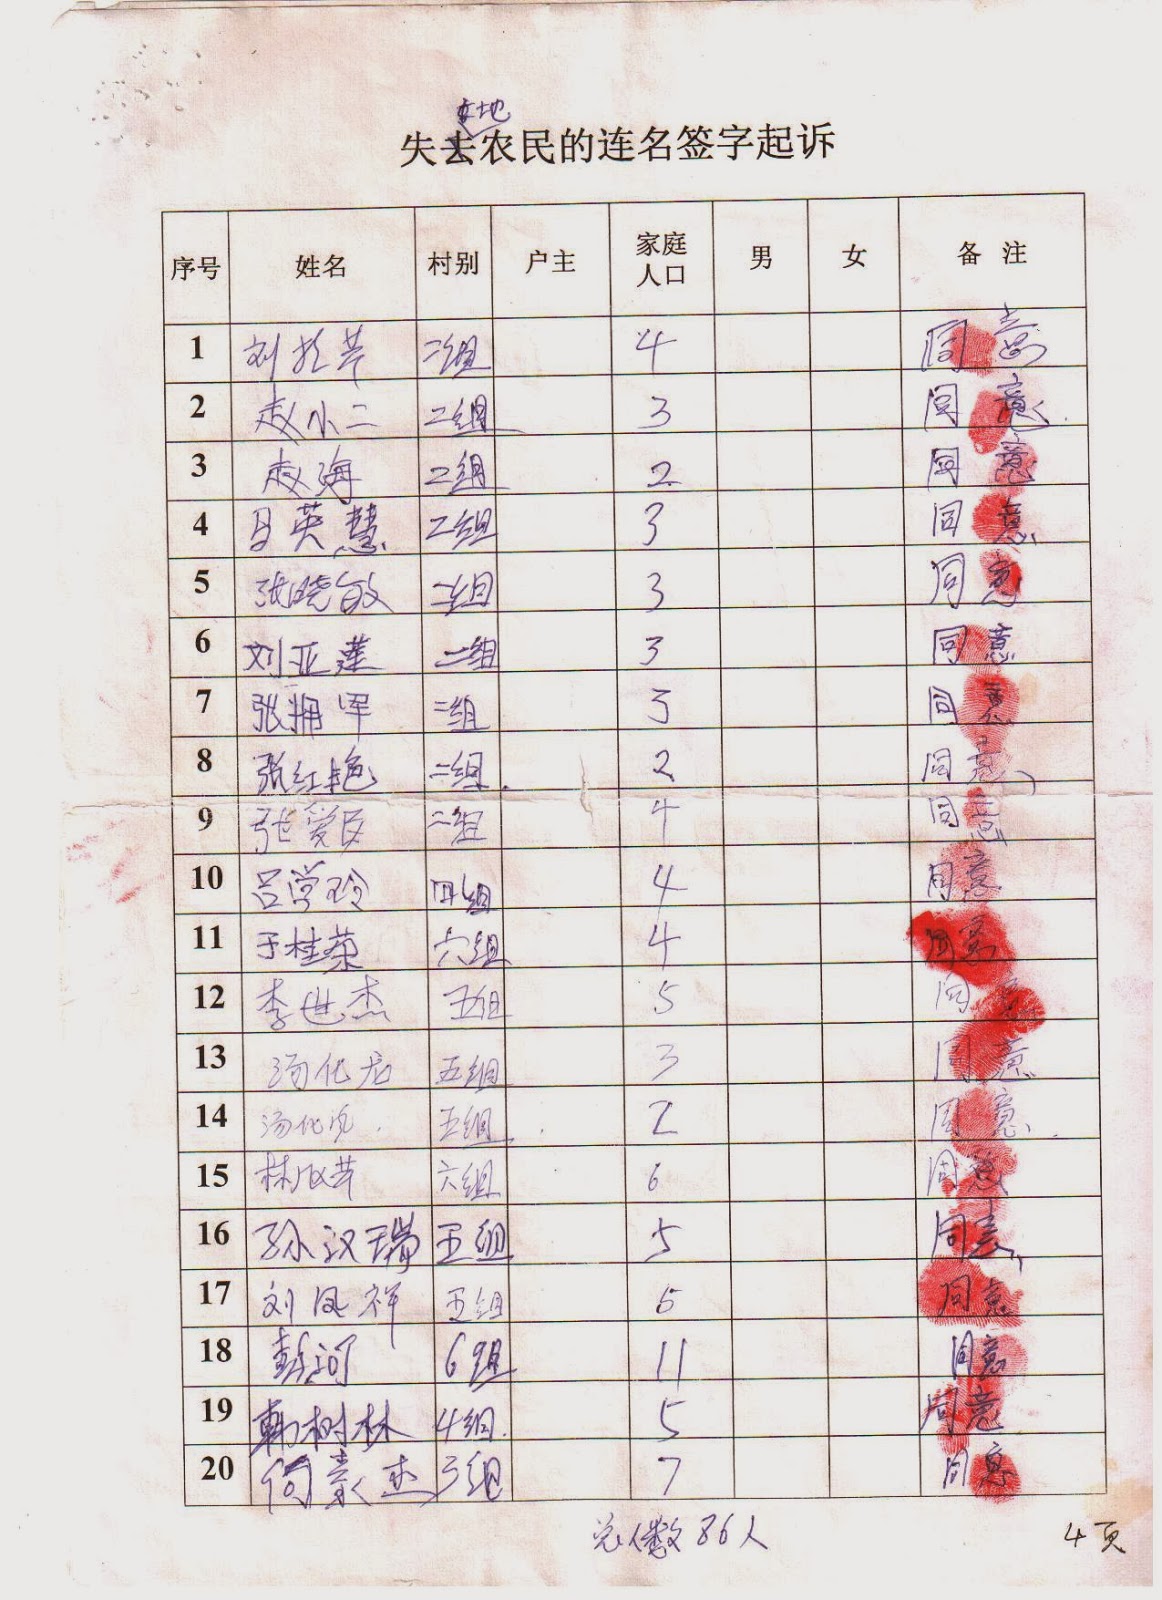 失去地农民的连名签字起诉
序号 姓名 村别 户主 家庭人口 男 女 备注
1 刘 芹 二组 4 同意
2 赵小二 二组 3 同意
3 赵海 二组 2 同意
4 吕英慧 二组 3 同意
5 张晓敏 二组 3 同意
6 刘亚莲 二组 3 同意
7 张拥军 二组 3 同意
8 张红艳 二组 2 同意
9 张爱民 二组 4 同意
10 吕学玲 四组 4 同意
11 于桂荣 六组 4 同意
12 李世杰 五组 5 同意
13 汤化龙 五组 3 同意
14 汤化 五组 2 同意
15 林 芹 六组 6 同意
16 孙汉瑞 五组 5 同意
17 刘凤祥 五组 6 同意
18 彭河 6组 11 同意
19 韩树林 4组 5 同意
20 何 杰 三组 7 同意
总人数86人
4页